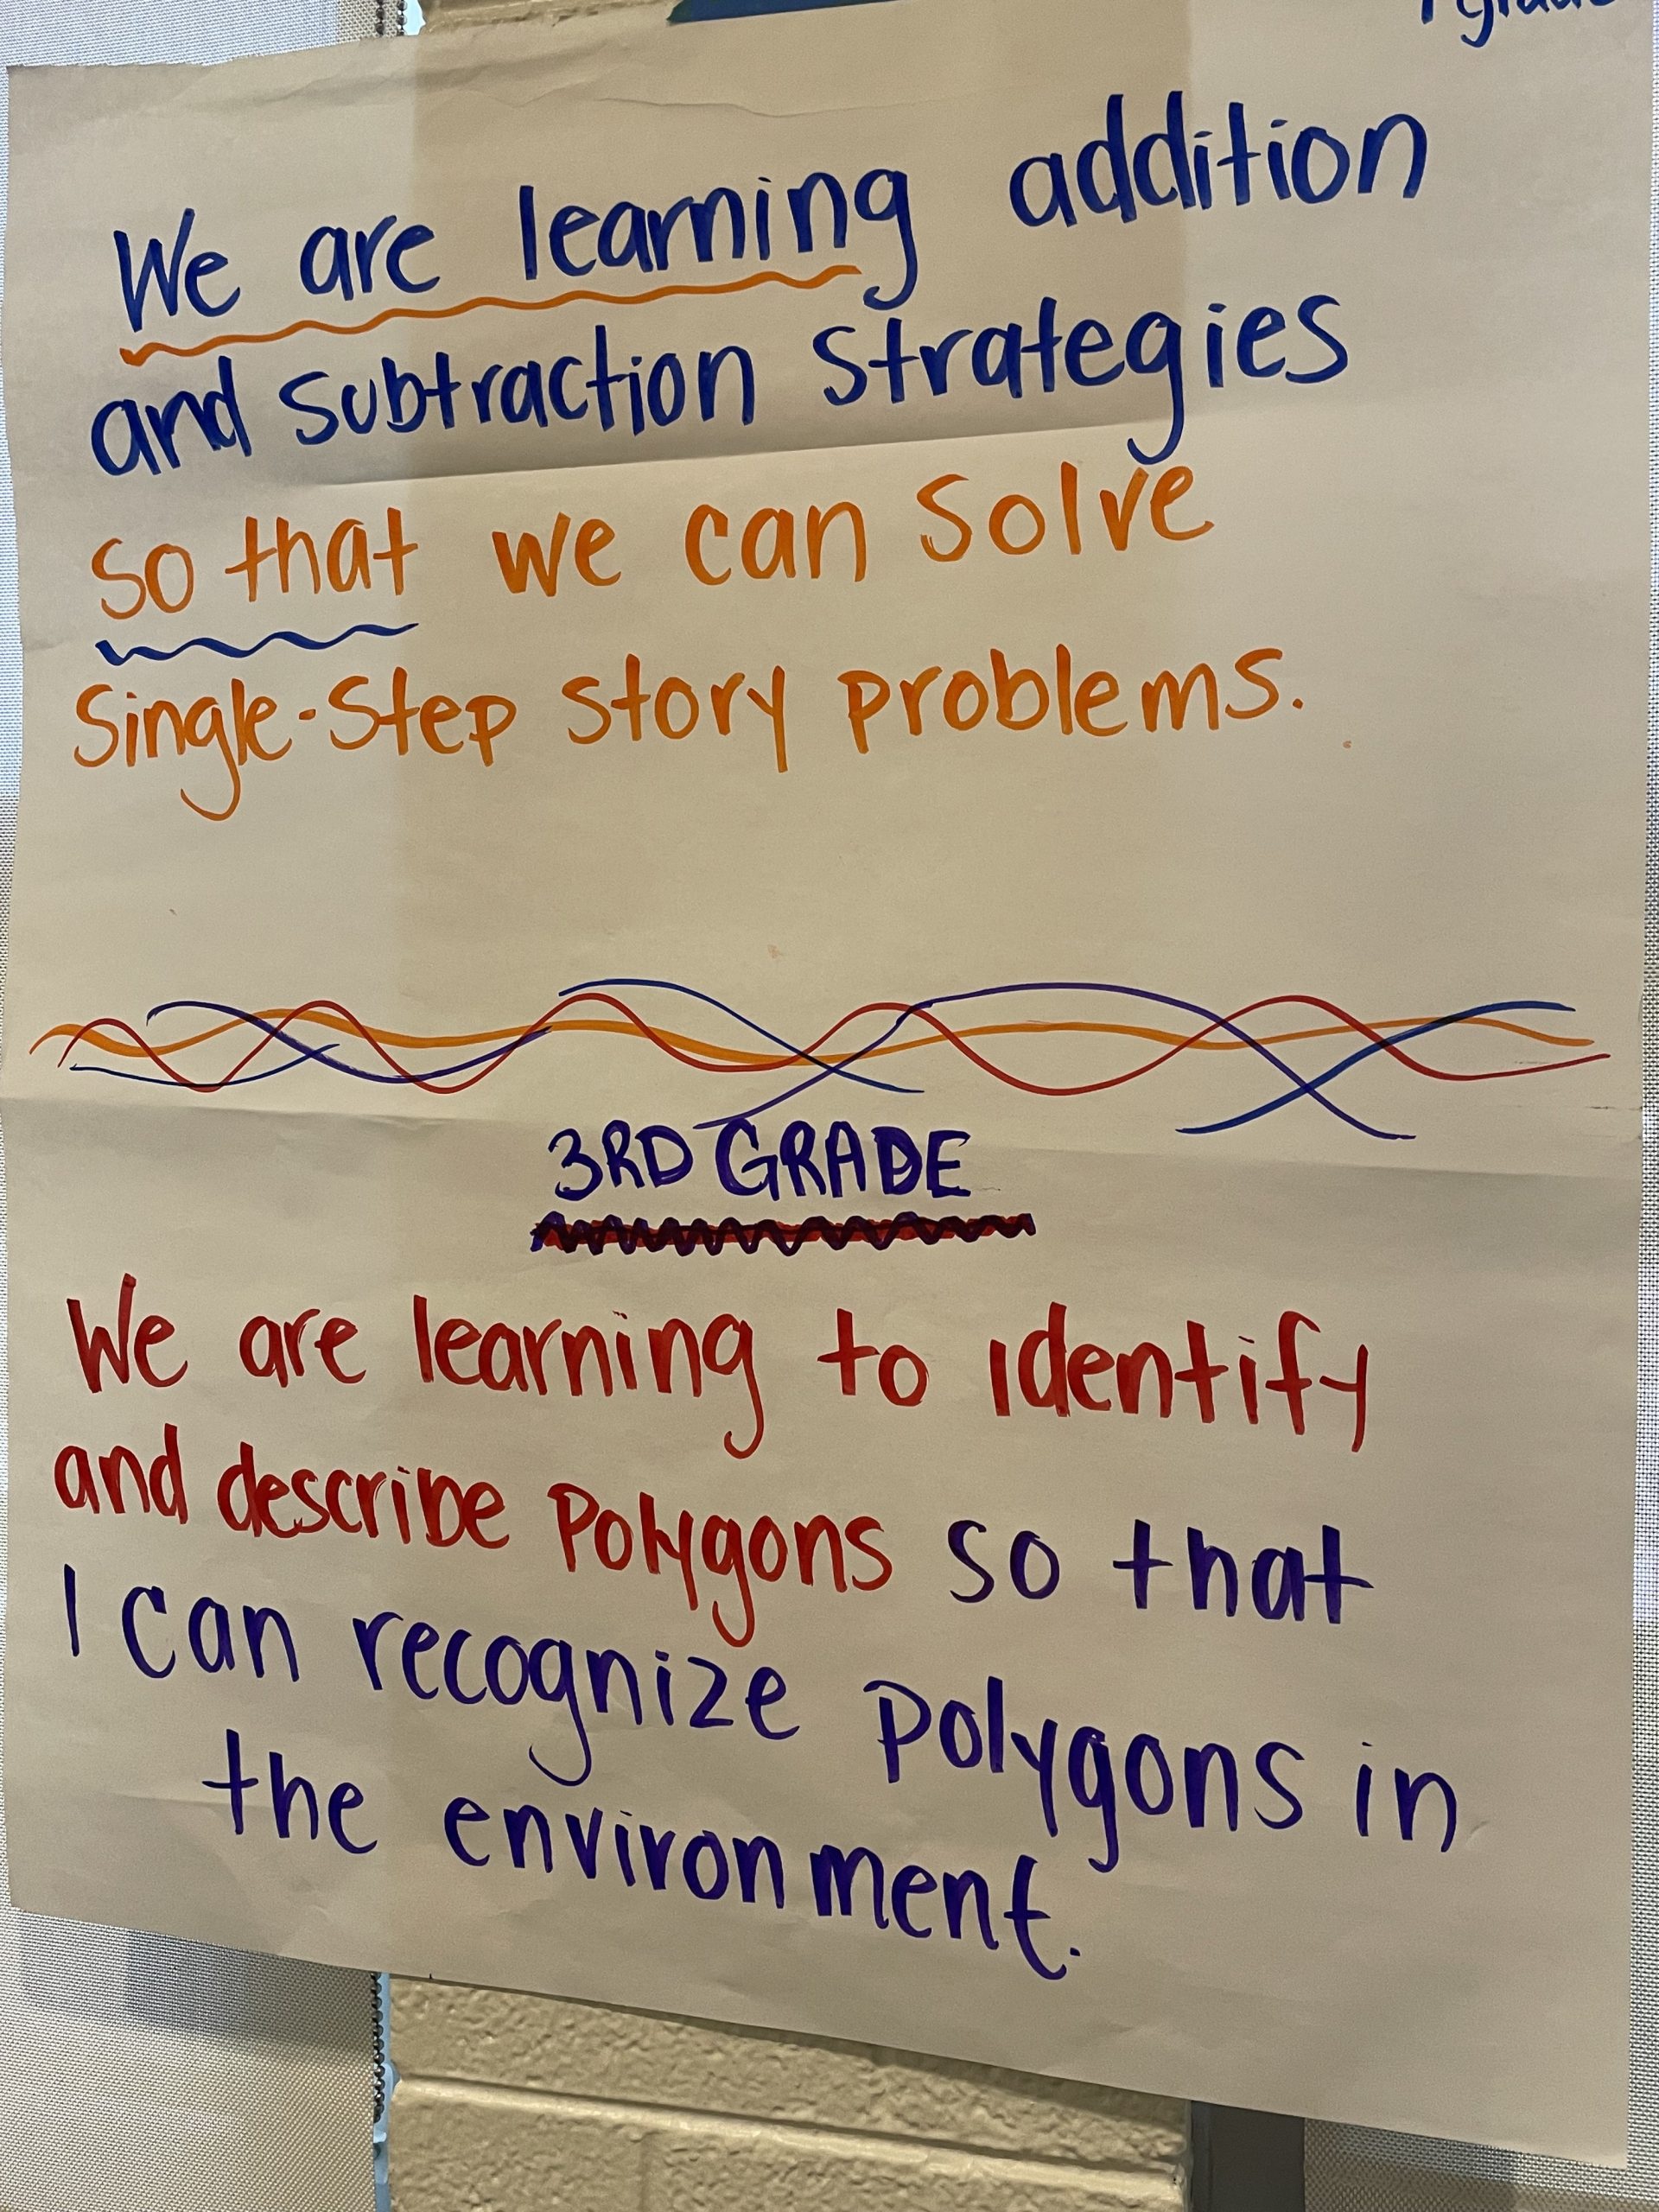 grade
We are learning addition
and subtraction strategies
so that we can solve
single-step story problems.
3RD GRADE
We are learning to identify
and describe polygons so that
I can recognize polygons in
the environment.